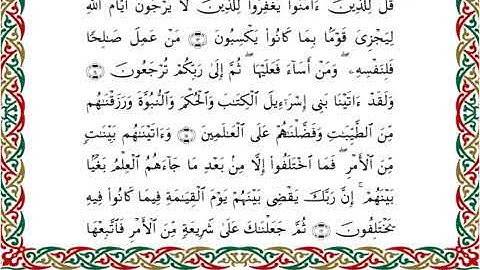 قُل لِّلَّذِينَ ءَامَنُوا۟ يَغْفِرُوا۟ لِلَّذِينَ لَا يَرْجُونَ أَيَّامَ ٱللَّهِ
لِيَجْزِىَ قَوْمًۢا بِمَا كَانُوا۟ يَكْسِبُونَ ۝ مَنْ عَمِلَ صَـٰلِحًا
فَلِنَفْسِهِۦ ۖ وَمَنْ أَسَآءَ فَعَلَيْهَا ۖ ثُمَّ إِلَىٰ رَبِّكُمْ تُرْجَعُونَ ۝
وَلَقَدْ ءَاتَيْنَا بَنِىٓ إِسْرَٰٓءِيلَ ٱلْكِتَـٰبَ وَٱلْحُكْمَ وَٱلنُّبُوَّةَ وَرَزَقْنَـٰهُم
مِّنَ ٱلطَّيِّبَـٰتِ وَفَضَّلْنَـٰهُمْ عَلَى ٱلْعَـٰلَمِينَ ۝ وَءَاتَيْنَـٰهُم بَيِّنَـٰتٍ
مِّنَ ٱلْأَمْرِ ۖ فَمَا ٱخْتَلَفُوٓا۟ إِلَّا مِنۢ بَعْدِ مَا جَآءَهُمُ ٱلْعِلْمُ بَغْيًۢا
بَيْنَهُمْ ۚ إِنَّ رَبَّكَ يَقْضِى بَيْنَهُمْ يَوْمَ ٱلْقِيَـٰمَةِ فِيمَا كَانُوا۟ فِيهِ
يَخْتَلِفُونَ ۝ ثُمَّ جَعَلْنَـٰكَ عَلَىٰ شَرِيعَةٍ مِّنَ ٱلْأَمْرِ فَٱتَّبِعْهَا